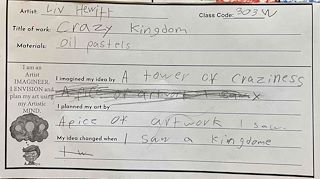 Artist: Liv Hewitt Class Code: 303W
Title of work: Crazy Kingdom
Materials: Oil pastels
I am an
Artist
IMAGINEER.
I ENVISION and
plan my art using
my Artistic
MIND.
I imagined my idea by A tower of craziness
Apice or artwork I saw x
I planned my art by
Apice of artwork I saw.
My idea changed when I saw a kingdome
I w